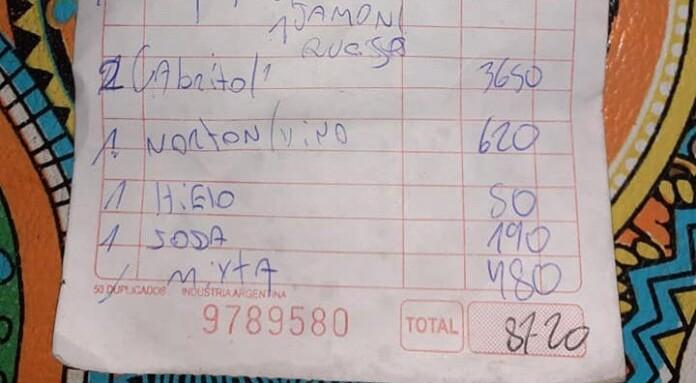 1 JAMON/
QUESSO
2 CAbrito/1 3650
1 NORTON/vino 620
1 HiElO 50
1 SODA 190
1 MiXTA 480
50 DUPLICADOS INDUSTRIA ARGENTINA
9789580 TOTAL 8720